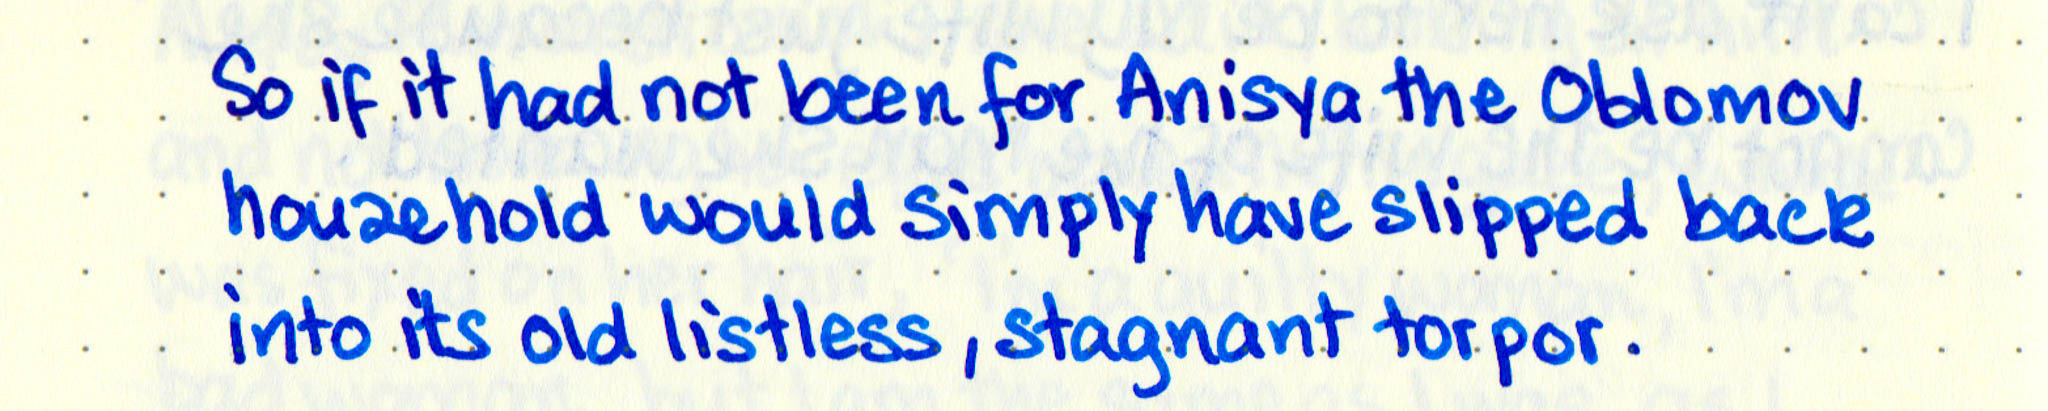 So if it had not been for Anisya the Oblomov
household would simply have slipped back
into its old listless, stagnant torpor.